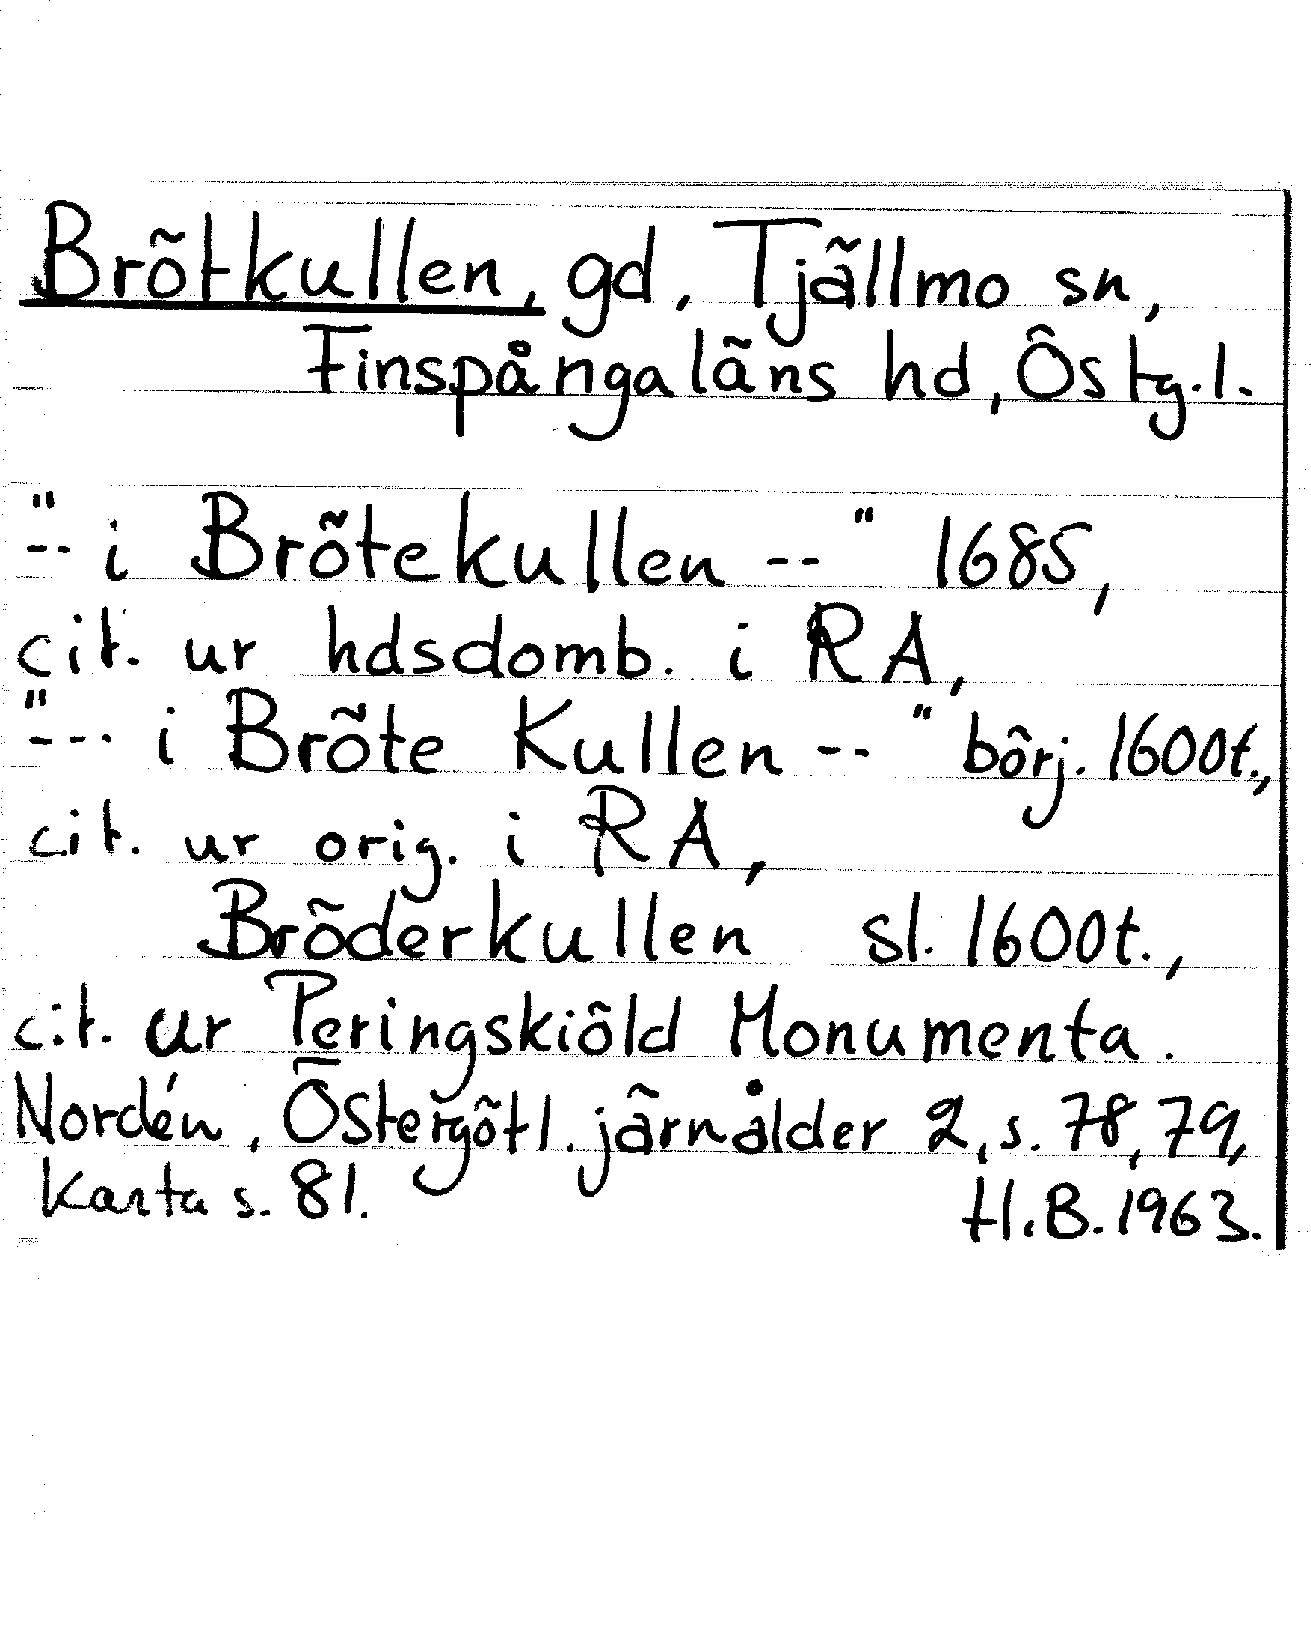 Brötkullen, gd, Tjällmo sn,
Finspånga läns hd, Östg.l.
"-- i Brötekullen --" 1685,
cit. ur hdsdomb. i RA,
"--- i Bröte Kullen --" börj. 1600t.,
cit. ur orig. i RA,
Bröderkullen sl. 1600t.,
cit. ur Peringskiöld Monumenta.
Nordén, Östergötl. järnålder 2, s. 78, 79,
Karta s. 81. H.B. 1963.